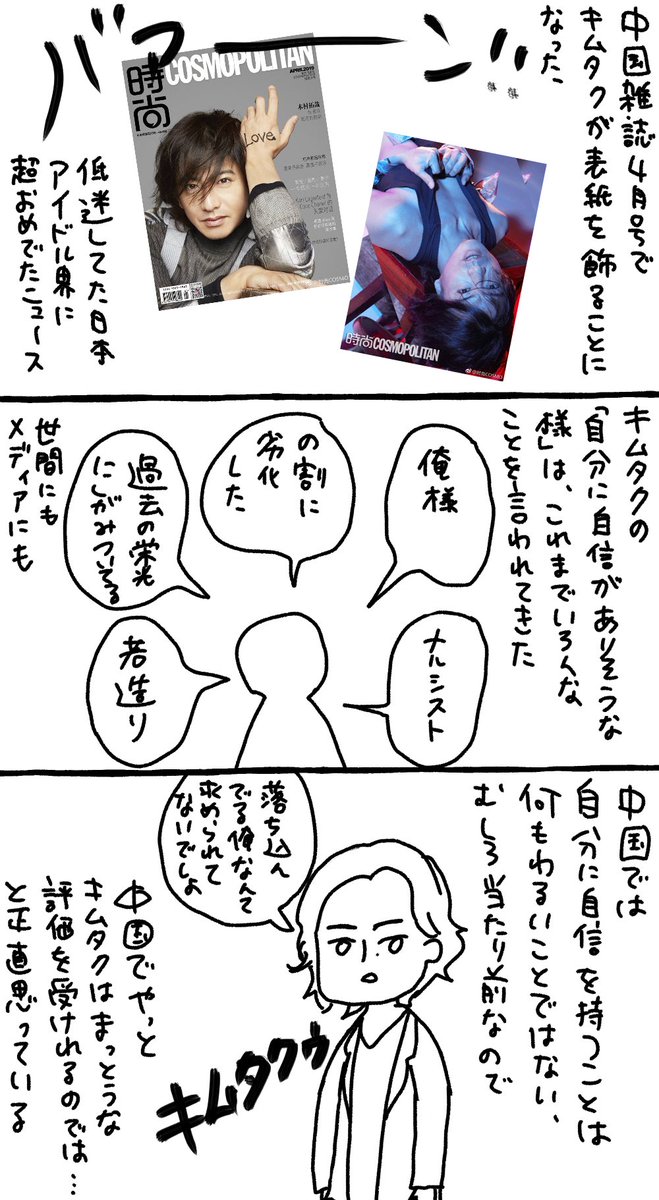 中国雑誌4月号で
キムタクが表紙を飾ることに
なった
バァーーン!!
時尚
COSMOPOLITAN
APRIL2019
木村拓哉
Love.
時尚COSMOPOLITAN
@时尚COSMO
低迷してた日本
アイドル界に
超おめでたニュース
キムタクの
「自分に自信がありそうな
様」は、これまでいろんな
ことを言われてきた
俺様
の割に
劣化
した
過去の栄光
にしがみついてる
世間にも
メディアにも
ナルシスト
若造り
中国では
自分に自信を持つことは
何もわるいことではない、
むしろ当たり前なので
落ち込ん
でる俺なんて
求められて
ないでしょ
キムタクゥ
中国でやっと
キムタクはまっとうな
評価を受けれるのでは…
と正直思っている